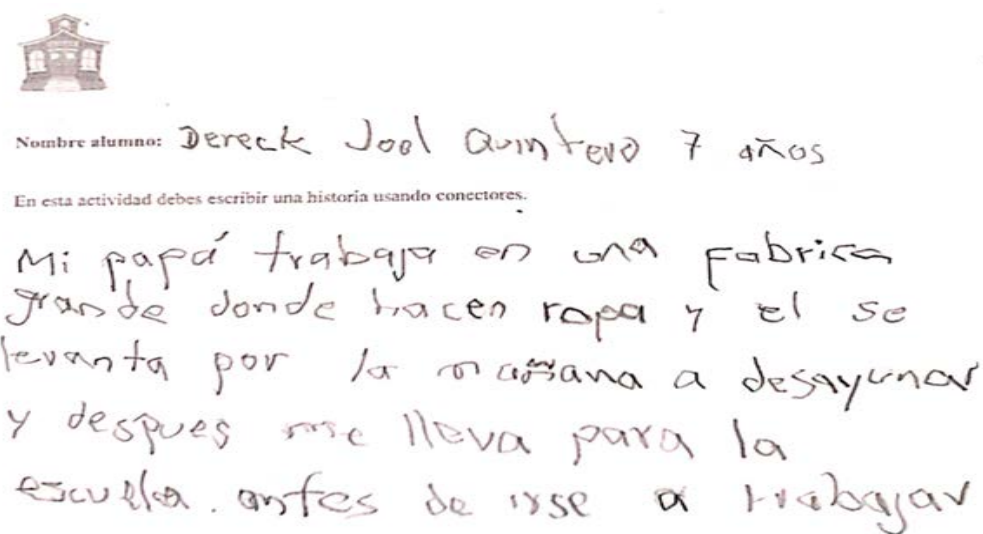 Nombre alumno: Dereck Joel Quintero 7 años
En esta actividad debes escribir una historia usando conectores.
Mi papá trabaja en una fabrica
grande donde hacen ropa y el se
levanta por la mañana a desayunar
y despues me lleva para la
escuela. antes de irse a trabajar